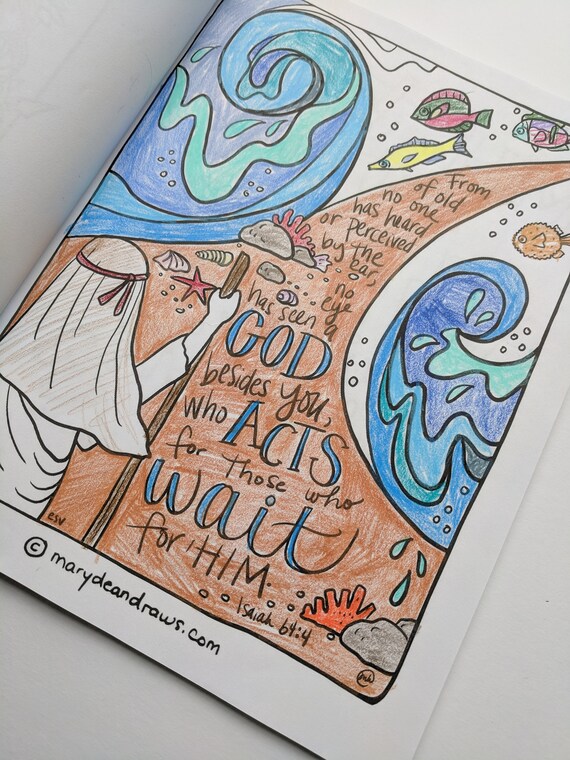 From
of old
no one
has heard
or perceived
by the
ear,
no
eye
has seen a
GOD
besides YOU,
who ACTS
for those who
wait
for HIM.
Isaiah 64:4
esv
© marydeandraws.com